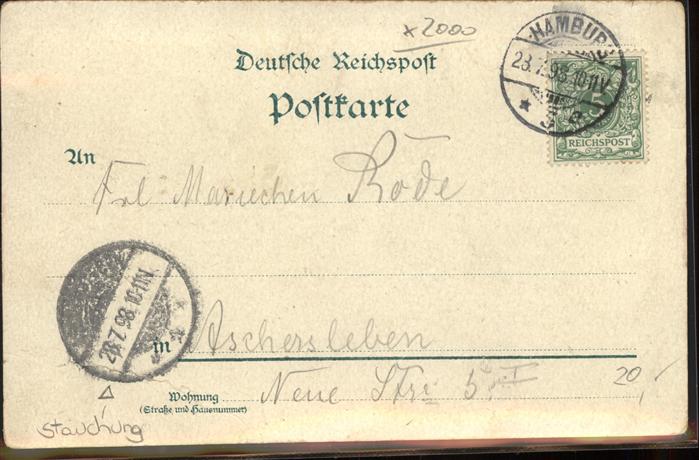 x 2000
Deutsche Reichspost
Postkarte
HAMBURG
23.7.98.10-11V.
* 5 e
5
REICHSPOST
An
Frl Mariechen Rode
28.7.98.10-11V
in Aschersleben
Neue Str: 5
20,-
Wohnung
(Straße und Hausnummer)
Stauchung